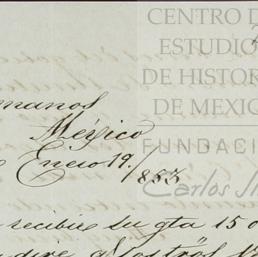 CENTRO D
ESTUDIO
DE HISTOR
DE MEXIC
FUNDACI
Carlos Sl
manos
México
Enero 19/853
recibir su gta 15 o